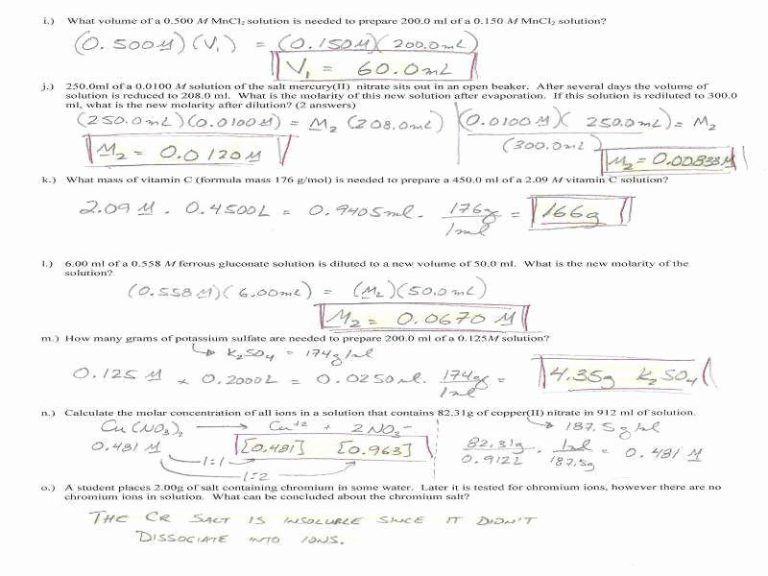 i.) What volume of a 0.500 M MnCl₂ solution is needed to prepare 200.0 ml of a 0.150 M MnCl₂ solution?
(0.500M)(V₁) = (0.150M)(200.0mL)
V₁ = 60.0mL
j.) 250.0ml of a 0.0100 M solution of the salt mercury(II) nitrate sits out in an open beaker. After several days the volume of
solution is reduced to 208.0 ml. What is the molarity of this new solution after evaporation. If this solution is rediluted to 300.0
ml, what is the new molarity after dilution? (2 answers)
(250.0mL)(0.0100M) = M₂ (208.0mL) (0.0100M)(250.0mL) = M₂
(300.0mL)
M₂ = 0.0120M M₂ = 0.00833M
k.) What mass of vitamin C (formula mass 176 g/mol) is needed to prepare a 450.0 ml of a 2.09 M vitamin C solution?
2.09 M · 0.4500L = 0.9405mol · 176g = 166g
1mol
l.) 6.00 ml of a 0.558 M ferrous gluconate solution is diluted to a new volume of 50.0 ml. What is the new molarity of the
solution?
(0.558M)(6.00mL) = (M₂)(50.0mL)
M₂ = 0.0670 M
m.) How many grams of potassium sulfate are needed to prepare 200.0 ml of a 0.125M solution?
↳ K₂SO₄ = 174g/mol
0.125 M × 0.2000L = 0.0250mol · 174g = 4.35g K₂SO₄
1mol
n.) Calculate the molar concentration of all ions in a solution that contains 82.31g of copper(II) nitrate in 912 ml of solution.
Cu(NO₃)₂ → Cu⁺² + 2NO₃⁻ ↳ 187.5g/mol
0.481 M [0.481] [0.963] 82.31g · 1mol = 0.481 M
0.912L 187.5g
1:1
1:2
o.) A student places 2.00g of salt containing chromium in some water. Later it is tested for chromium ions, however there are no
chromium ions in solution. What can be concluded about the chromium salt?
THE CR SALT IS INSOLUBLE SINCE IT DIDN'T
DISSOCIATE INTO IONS.